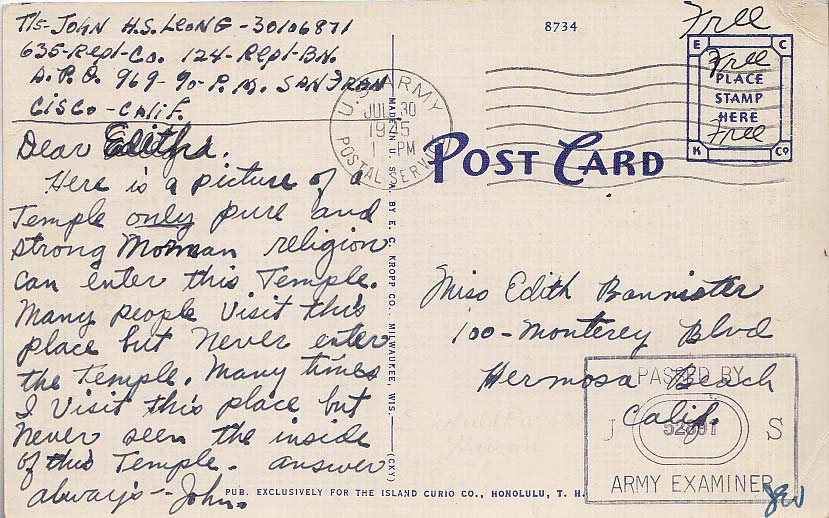 T/5-JOHN H.S. LEONG-30106871
635-Repl-Co. 124-Repl-BN.
A.P.O. 969-90-P.M. SAN FRAN
CISCO-CALIF.
Dear
Here is a picture of a
Temple only pure and
strong Morman religion
can enter this Temple.
Many people visit this
place but never enter
the Temple. Many times
I visit this place but
never seen the inside
of this Temple. answer
always-- John.
8734
Free
E C
Free
PLACE
STAMP
HERE
Free
K Co
U.S. ARMY
JUL 30
1945
1 PM
POSTAL SERVICE
POST CARD
MADE IN U. S. A. BY E. C. KROPP CO., MILWAUKEE, WIS. (CKY)
Miss Edith Bannister
100-Monterey Blvd
Hermosa Beach
Calif.
PASSED BY
J S
ARMY EXAMINER
PUB. EXCLUSIVELY FOR THE ISLAND CURIO CO., HONOLULU, T. H.